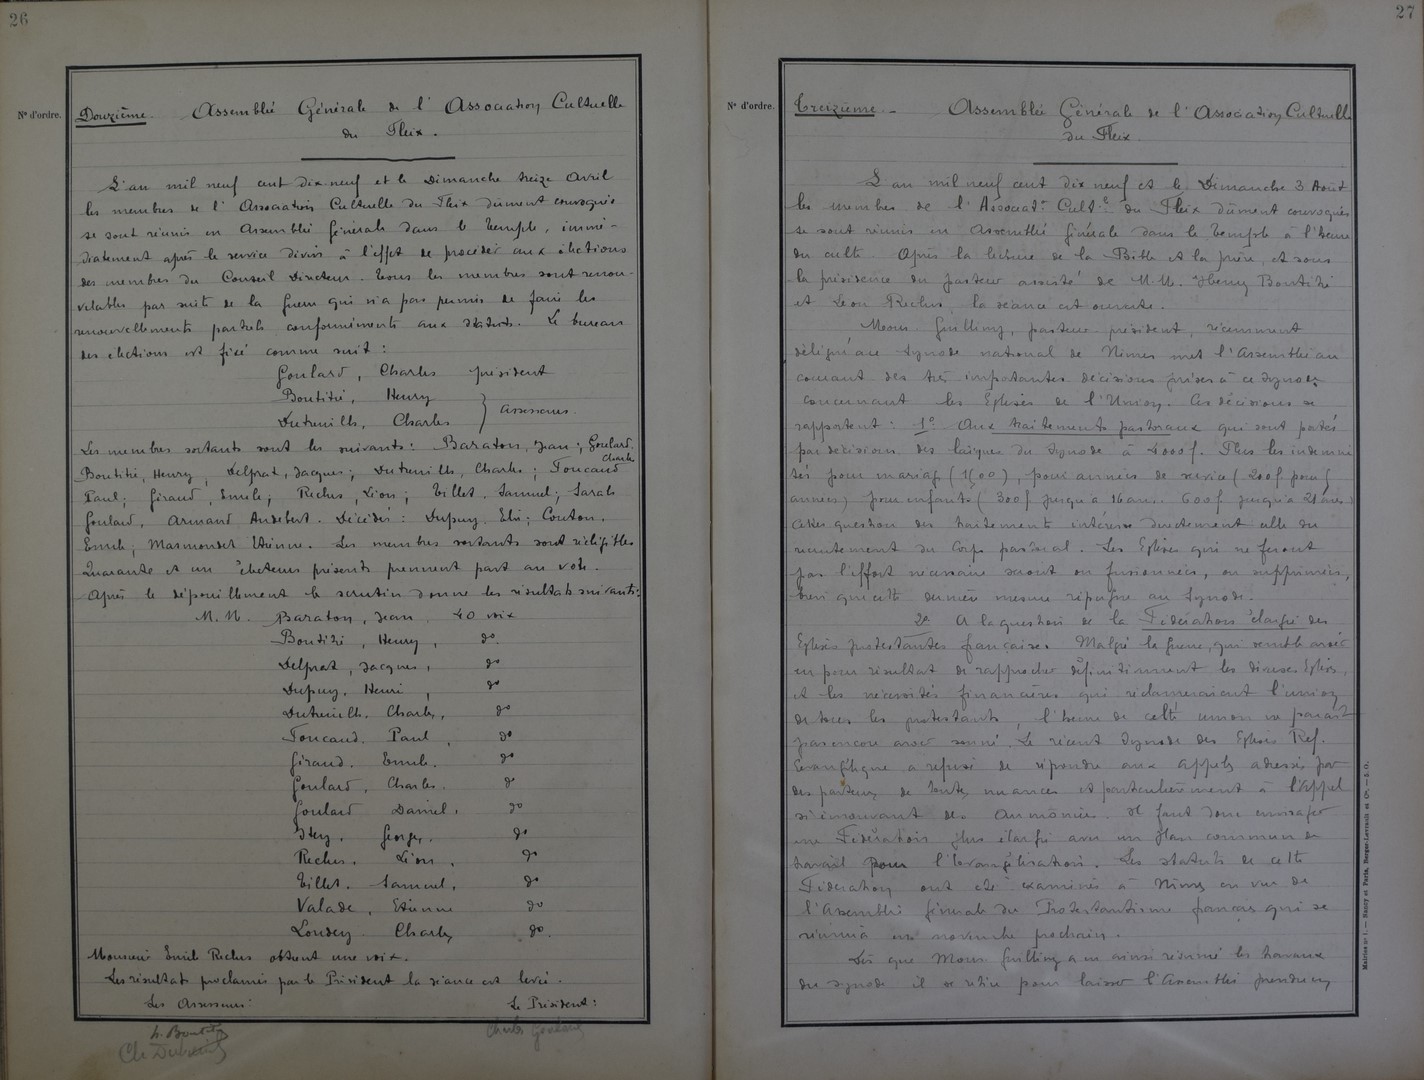 26
N° d'ordre.
Douzième. Assemblée Générale de l'Association Cultuelle
du Fleix.
L'an mil neuf cent dix neuf et le Dimanche treize Avril
les membres de l'Association Cultuelle du Fleix dûment convoqués
se sont réunis en Assemblée Générale dans le temple, immé-
diatement après le service divin à l'effet de procéder aux élections
des membres du Conseil Directeur. Tous les membres sont renou-
velables par suite de la guerre qui n'a pas permis de faire les
renouvellements partiels conformément aux statuts. Le bureau
des élections est fixé comme suit :
Goulard, Charles président
Boutitié, Henry
Dutreuilh, Charles } assesseurs.
Les membres sortants sont les suivants : Baraton, Jean ; Goulard, Charles
Boutitié, Henry, Delprat, Jacques ; Dutreuilh, Charles ; Foucaud
Paul ; Giraud, Emile ; Reclus, Léon ; Tillet, Samuel ; Sarah
Goulard, Armand Audebert. Décédés : Dupuy, Elie ; Couton,
Emile ; Marmondet Etienne. Les membres sortants sont rééligibles
Quarante et un électeurs présents prennent part au vote.
Après le dépouillement le scrutin donne les résultats suivants :
M.M. Baraton, Jean 40 voix
Boutitié, Henry, do.
Delprat, Jacques, do
Dupuy, Henri, do
Dutreuilh, Charles, do
Foucaud, Paul, do
Giraud, Emile. do
Goulard, Charles. do
Goulard Daniel, do
Itey, Georges, do
Reclus, Léon, do
Tillet, Samuel, do
Valade, Etienne do
Loudey Charles do.
Monsieur Emile Reclus obtient une voix.
Les résultats proclamés par le Président la séance est levée.
Les Assesseurs : Le Président :
h. Boutitié Charles Goulard
Ch Dutreuilh
27
N° d'ordre.
Treizième. - Assemblée Générale de l'Association Cultuelle
du Fleix
L'an mil neuf cent dix neuf et le Dimanche 3 Août
les membres de l'Associatn Culte du Fleix dûment convoqués
se sont réunis en Assemblée Générale dans le temple à l'heure
du culte. Après la lecture de la Bible et la prière, et sous
la présidence du pasteur assisté de M.M. Henry Boutitié
et Léon Reclus la séance est ouverte.
Monsr Guilling, pasteur président, récemment
délégué au Synode national de Nîmes met l'Assemblée au
courant des très importantes décisions prises à ce synode
concernant les Eglises de l'Union. Ces décisions se
rapportent : 1° Aux traitements pastoraux qui sont portés
par décision des laïques du Synode à 4000f. Plus les indemni
tés pour mariage (1500), pour années de service (200f pour 5
années) pour enfants (300f jusqu'à 16 ans. 600f jusqu'à 21 ans)
Cette question des traitements intéresse directement celle du
recrutement du Corps pastoral. Les Eglises qui ne feront
pas l'effort nécessaire seront ou fusionnées, ou supprimées,
bien que cette dernière mesure répugne au Synode.
2° A la question de la Fédération élargie des
Eglises protestantes françaises. Malgré la guerre, qui semble avoir
eu pour résultat de rapprocher définitivement les diverses Eglises,
et les nécessités financières qui réclameraient l'union
de tous les protestants, l'heure de cette union ne paraît
pas encore avoir sonné. Le récent Synode des Eglises Réf.
Evangélique a refusé de répondre aux appels adressés par
des pasteurs de toutes nuances et particulièrement à l'Appel
si émouvant des Aumôniers. Il faut donc envisager
une Fédération plus élargie avec un plan commun de
travail pour l'évangélisation. Les statuts de cette
Fédération ont été examinés à Nîmes en vue de
l'Assemblée Générale du Protestantisme français qui se
réunira en novembre prochain.
Dès que Monsr Guilling a eu ainsi résumé les travaux
du synode il se retire pour laisser l'Assemblée prendre en
Mairies n° 1. — Nancy et Paris, Berger-Levrault et Cie. — 5. O.